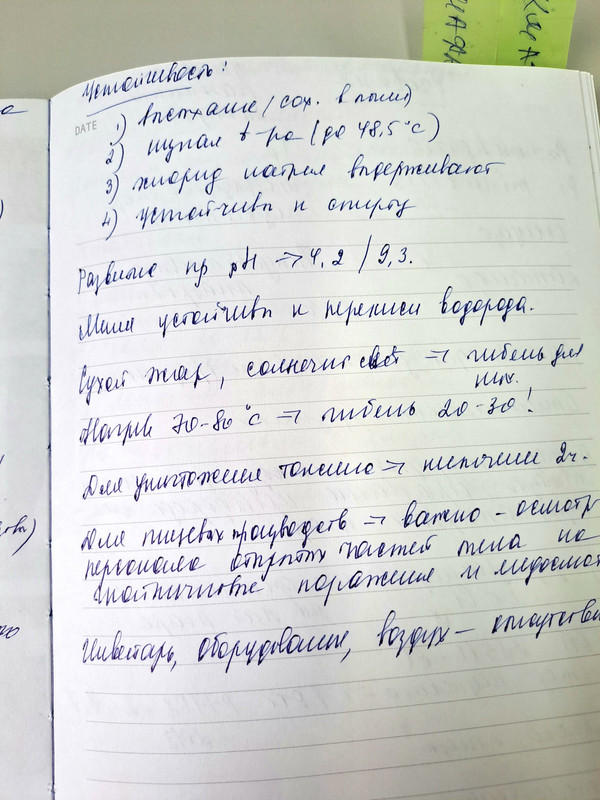 Устойчивость:
DATE
1) высыхание (сох. в пыли)
2) t-ра (до 48,5°С)
3) хлорид натрия выдерживают
4) устойчивы к спирту
Развитие пр рН → 4,2 / 9,3.
Мало устойчивы к перекиси водорода.
Сухой жар, солнечн свет → гибель для
них.
Нагрев 70-80°С → гибель 20-30!
Для уничтожения токсина → кипячение 2ч.
Для пищевых производств → важно - осмотр
персонала открытых частей тела на
поражения и медосмот
Инвентарь, оборудование, воздух -